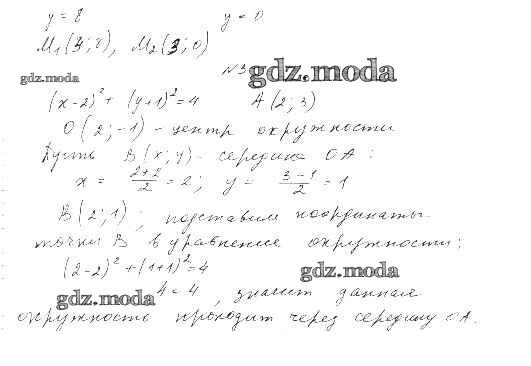 y = 8 y = 0
M₁(3; 8), M₂(3; 0)
gdz.moda
№3 gdz.moda
(x-2)² + (y+1)² = 4 A(2; 3)
O(2; -1) - центр окружности
Пусть B(x; y) - середина OA:
x = (2+2)/2 = 2; y = (3-1)/2 = 1
B(2; 1); подставим координаты
точки B в уравнение окружности;
(2-2)² + (1+1)² = 4
gdz.moda
gdz.moda 4 = 4, значит данная
окружность проходит через середину OA.